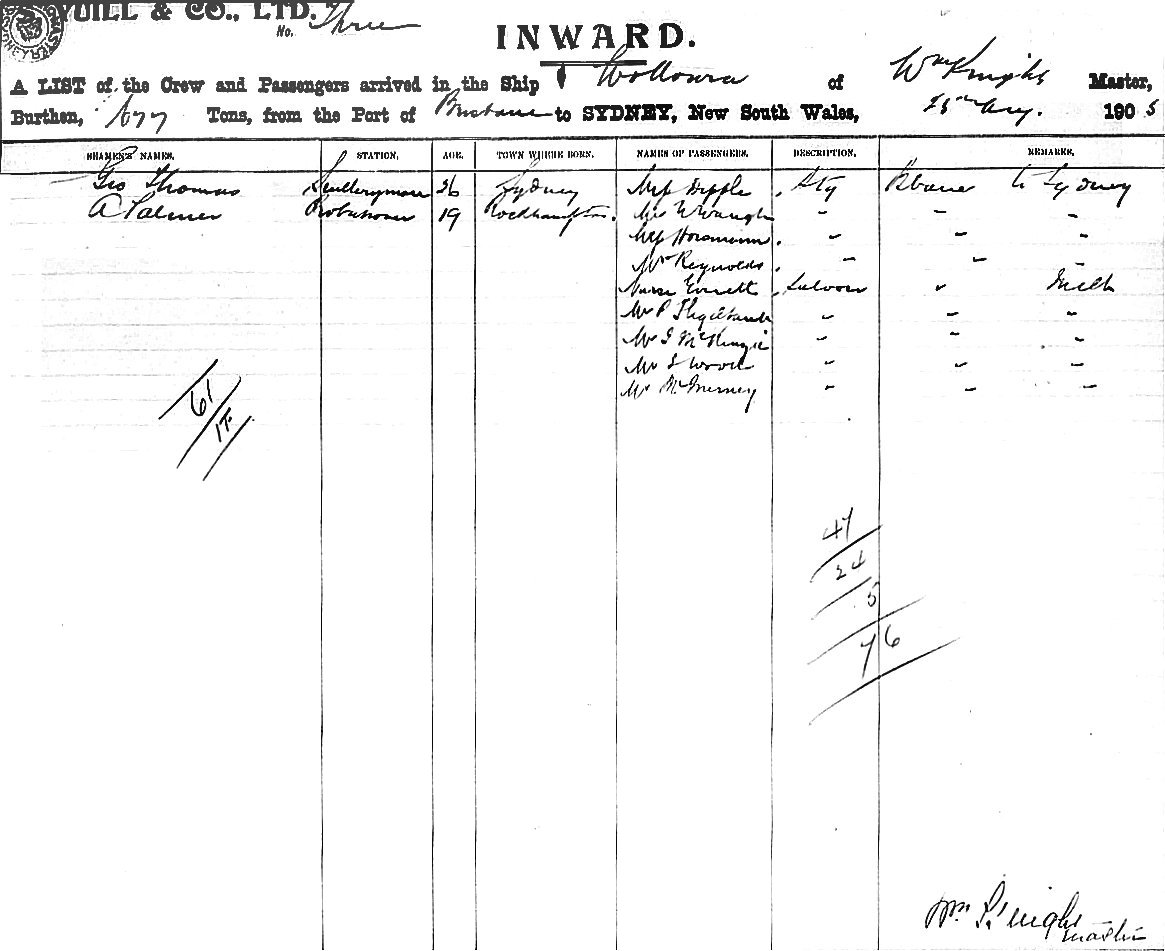 YUILL & CO., LTD.
No. Three
INWARD.
A LIST of the Crew and Passengers arrived in the Ship Wollowra of Wm Knight Master,
Burthen, Tons, from the Port of Brisbane to SYDNEY, New South Wales, 25th Aug. 1905
SEAMEN'S NAMES. STATION, AGE. TOWN WHERE BORN. NAMES OF PASSENGERS. DESCRIPTION, REMARKS,
Geo Thomas Sculleryman 26 Sydney Dipple Stg Bbane to Sydney
A Palmer 19 Rockhampton. - - -
- - -
Mr Reynolds. - - -
Nurse Everett Saloon " Melb
Mr P - - -
Mr McKenzie - - -
Mr S Wood - - -
Mr - - -
61
17
47
24
5
76
Wm Knight
Master